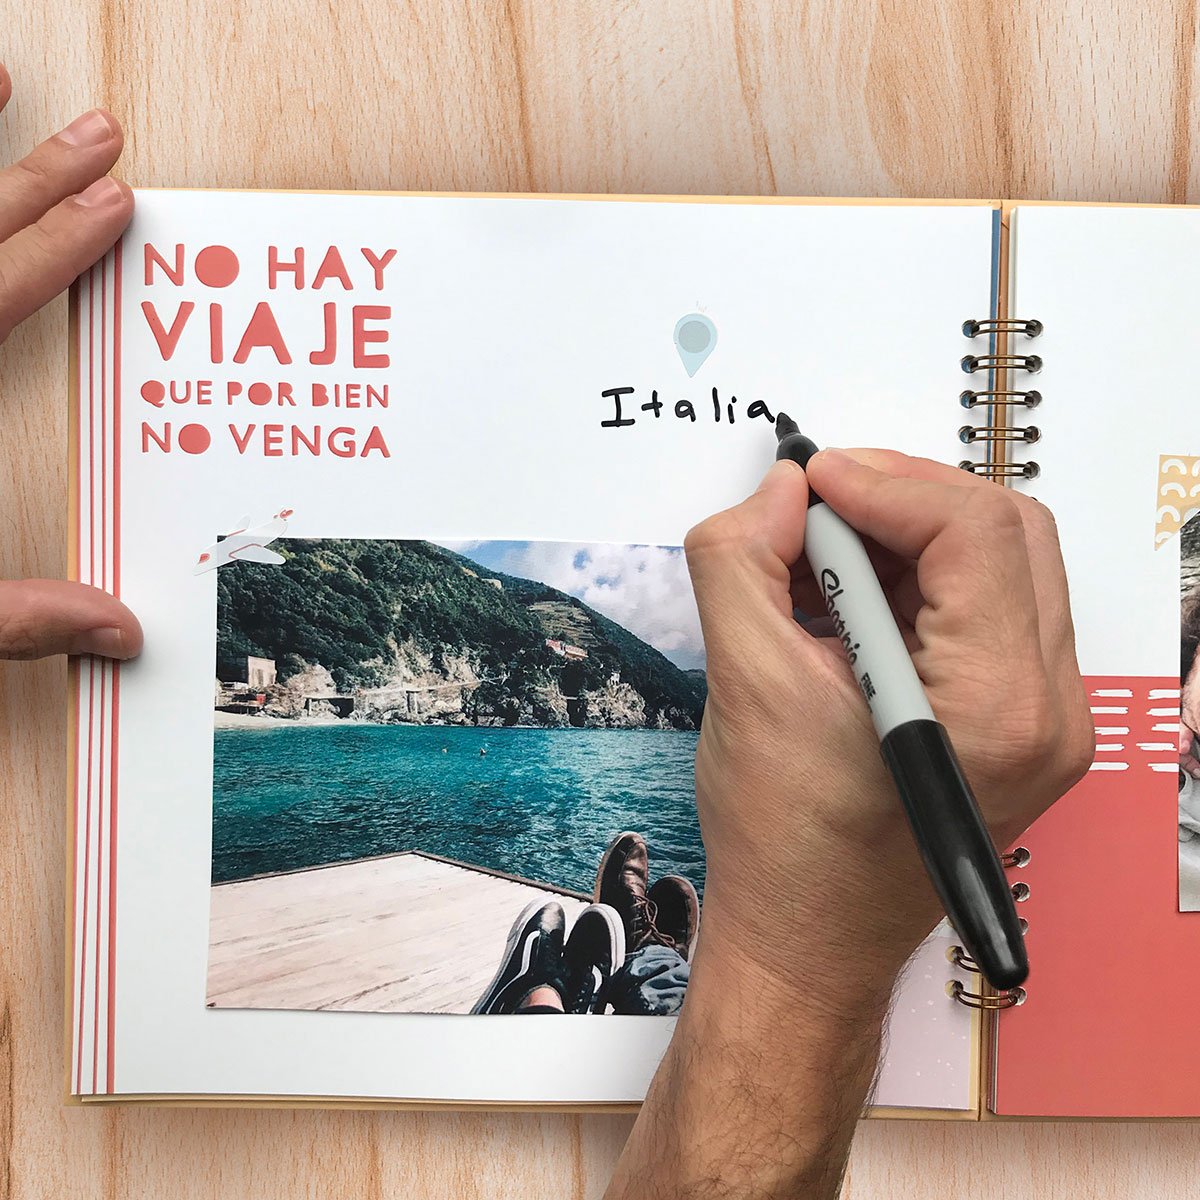 NO HAY
VIAJE
QUE POR BIEN
NO VENGA
Italia
Sharpie FINE